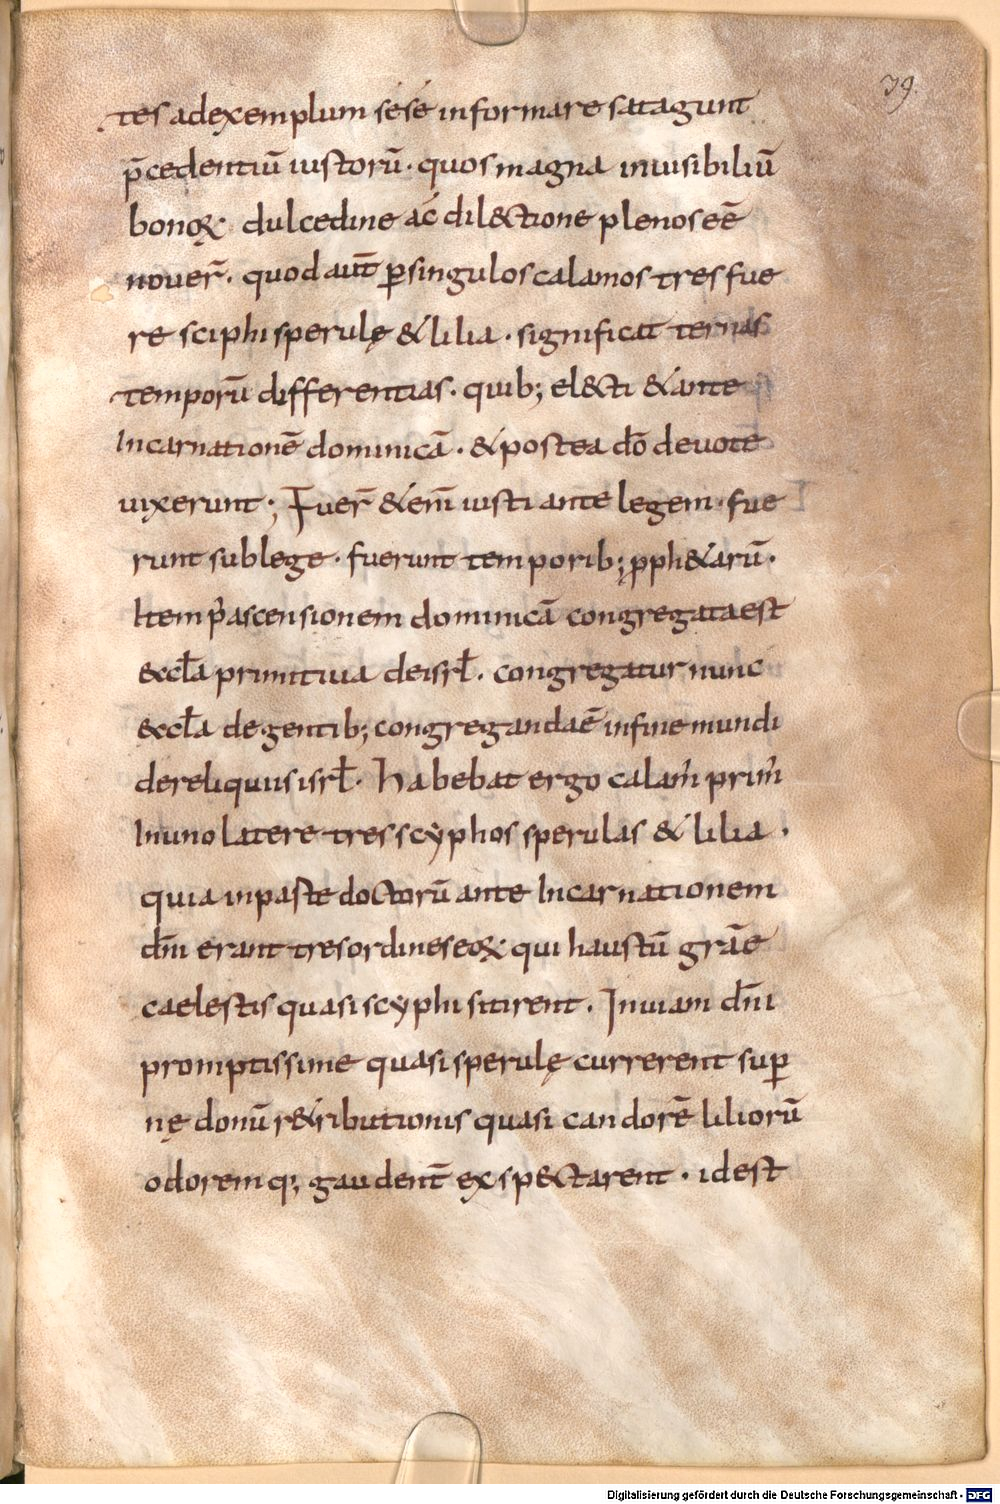 39.
tes adexemplum sése informare satagunt
p̄cedentiū iustorū. quos magna inuisibiliū
bonoꝝ dulcedine ac dil&ctione plenos eē
nouer̄. quod aut̄ ꝑsingulos calamos tres fue
re sciphi sperulę & lilia. significat ternas
temporū differentias. quib; el&cti & ante
Incarnationē dominicā. & postea dō deuote
uixerunt; Fuer̄ & em̄ iusti ante legem. fue
runt sub lege. fuerunt temporib; pph&arū.
Item p᷒ascensionem dominicā congregata est
&ccƚa primitiua deisrƚ. congregatur nunc
&ccƚa de gentib; congreganda ē infine mundi
dereliquiis isrƚ. Habebat ergo calam᷒ prim᷒
In uno latere tres scyphos sperulas & lilia.
quia inpaste doctorū ante Incarnationem
dn̄i erant tres ordines eoꝝ qui haustū grāe
caelestis quasi scyphi sitirent. In uiam dn̄i
promptissime quasi sperulę currerent suꝑ
nę donū r&ributionis quasi candorē liliorū
odorem q; gaudent̄ exsp&ctarent. id est
Digitalisierung gefördert durch die Deutsche Forschungsgemeinschaft - DFG